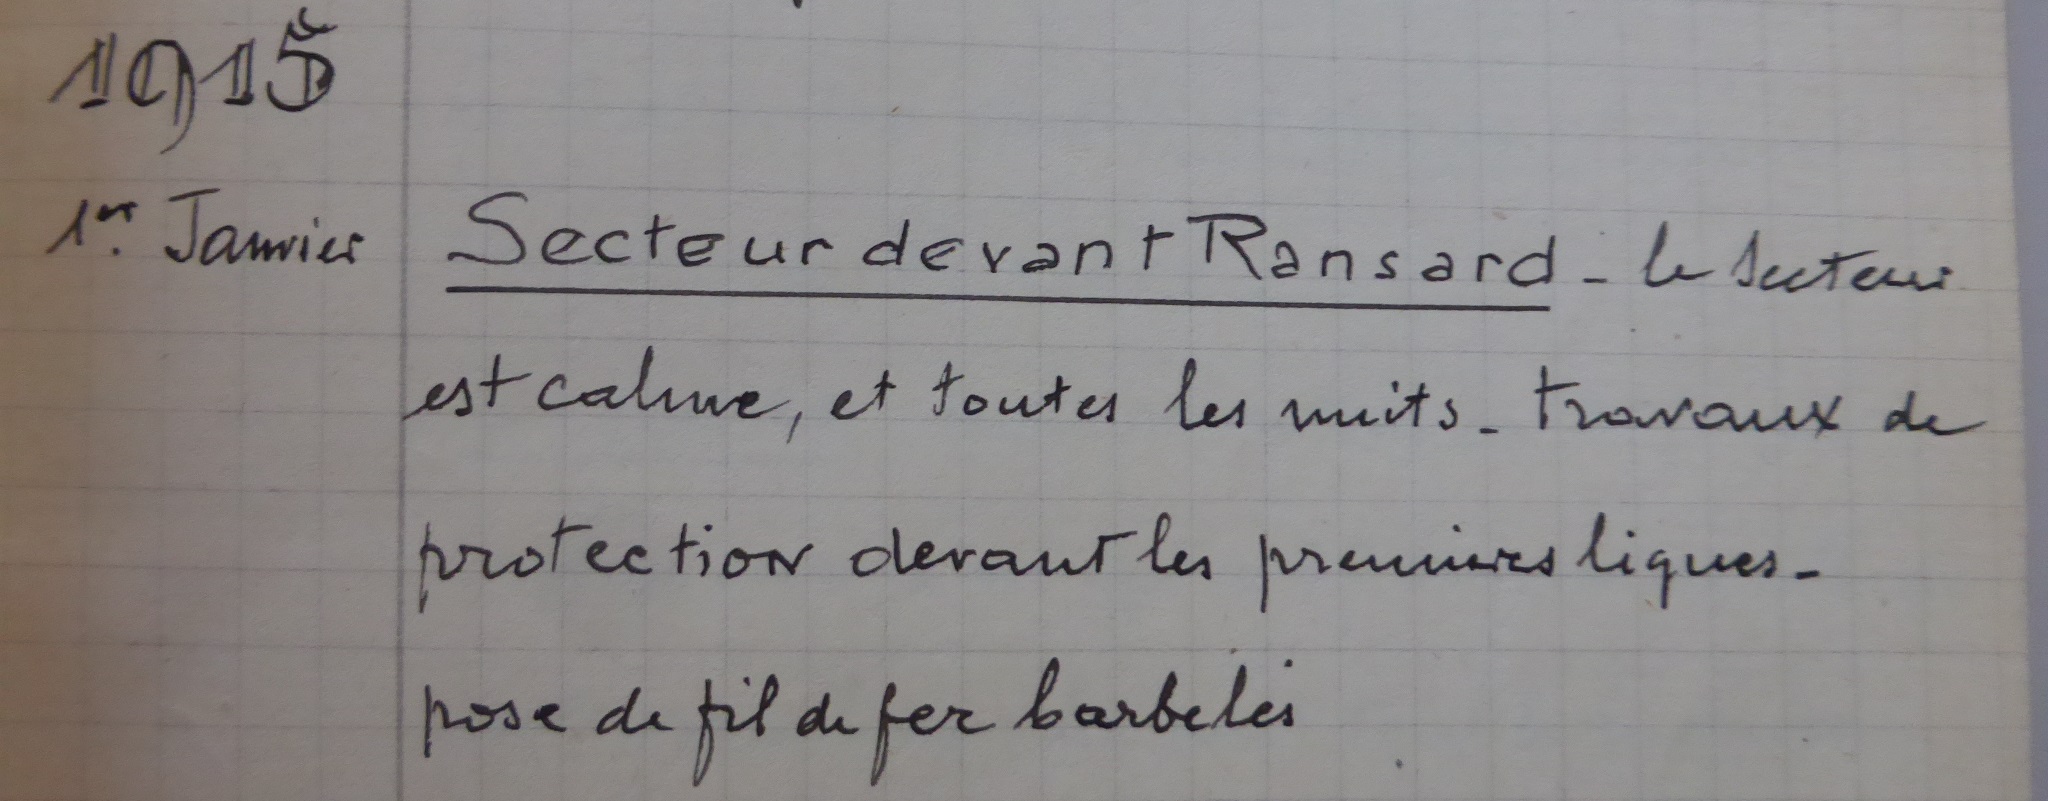 1915
1er. Janvier Secteur devant Ransard - le secteur
est calme, et toutes les nuits - travaux de
protection devant les premières lignes -
pose de fil de fer barbelés